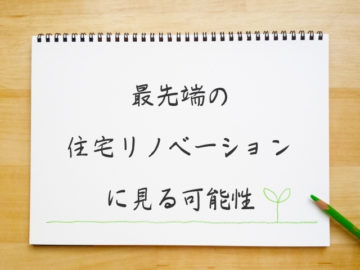 最先端の
住宅リノベーション
に見る可能性